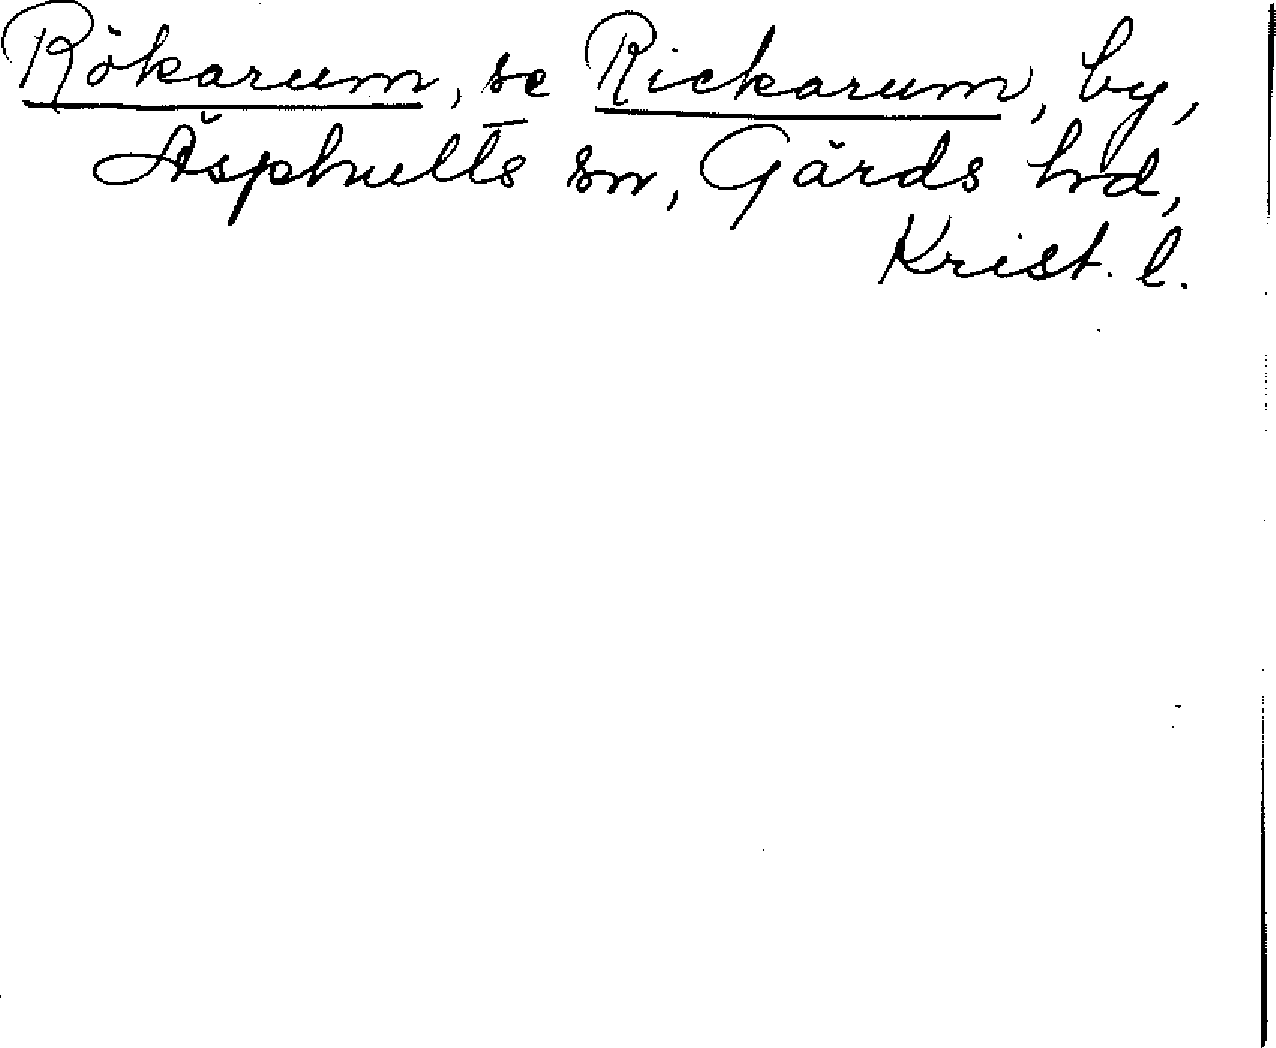 Rökarum, se Rickarum, by,
Äsphults sn, Gärds hd,
Krist. l.